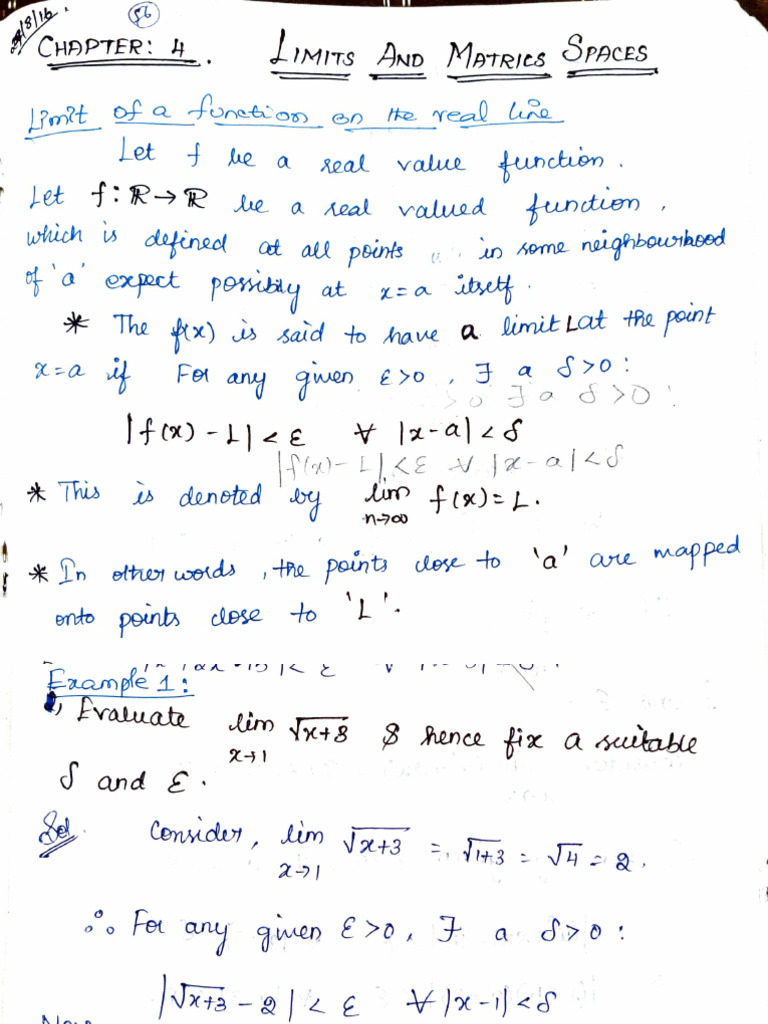 3/8/16.
56
CHAPTER: 4. LIMITS AND MATRICS SPACES
Limit of a function on the real line
Let f be a real value function.
Let f: ℝ → ℝ be a real valued function,
which is defined at all points in some neighbourhood
of 'a' expect possibly at x=a itself.
* The f(x) is said to have a limit L at the point
x=a if For any given ε>0, ∃ a δ>0:
>0 ∃ a δ>0:
|f(x) - L| < ε ∀ |x-a| < δ
|f(x) - L| < ε ∀ |x-a| < δ
* This is denoted by lim f(x) = L.
n→∞
* In other words, the points close to 'a' are mapped
onto points close to 'L'.
Example 1:
Evaluate lim √x+8 & hence fix a suitable
x→1
δ and ε.
Sol. Consider, lim √x+3 = √1+3 = √4 = 2.
x→1
∴ For any given ε>0, ∃ a δ>0:
|√x+3 - 2| < ε ∀ |x-1| < δ